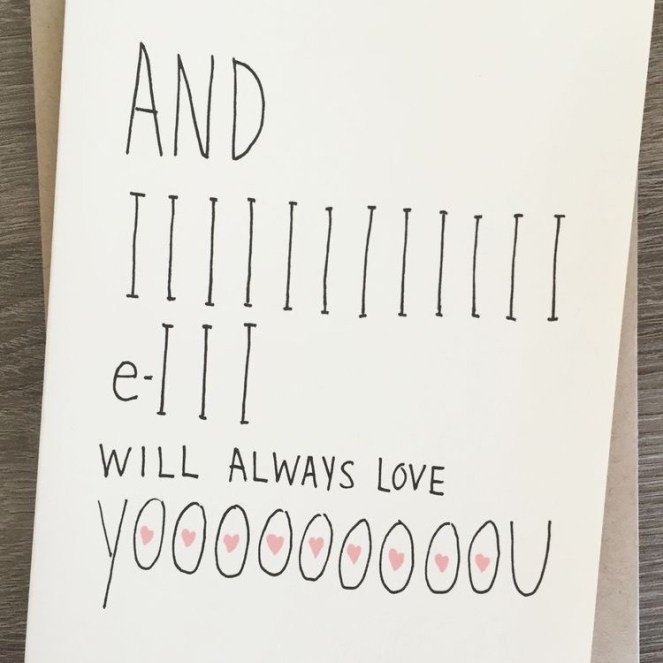 AND
IIIIIIIIIIII
e-III
WILL ALWAYS LOVE
YOOOOOOOOOU